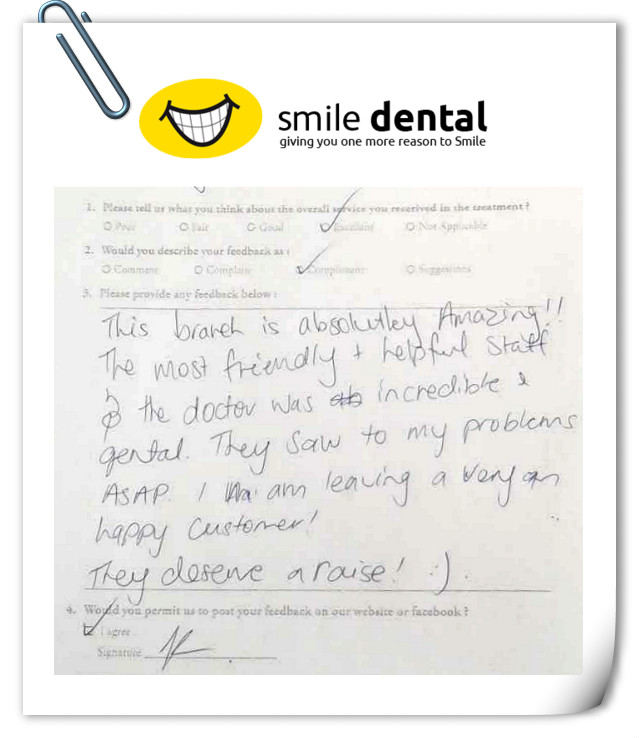 smile dental
giving you one more reason to Smile
1. Please tell us what you think about the overall service you received in the treatment?
Poor Fair Good Excellent Not Applicable
2. Would you describe your feedback as:
Comment Complaint Compliment Suggestion
3. Please provide any feedback below:
This branch is absolutley Amazing!!
The most friendly + helpful staff
& the doctor was incredible &
gental. They saw to my problems
ASAP. I am leaving a very
happy customer!
They deserve a raise! :).
4. Would you permit us to post your feedback on our website or facebook?
I agree
Signature